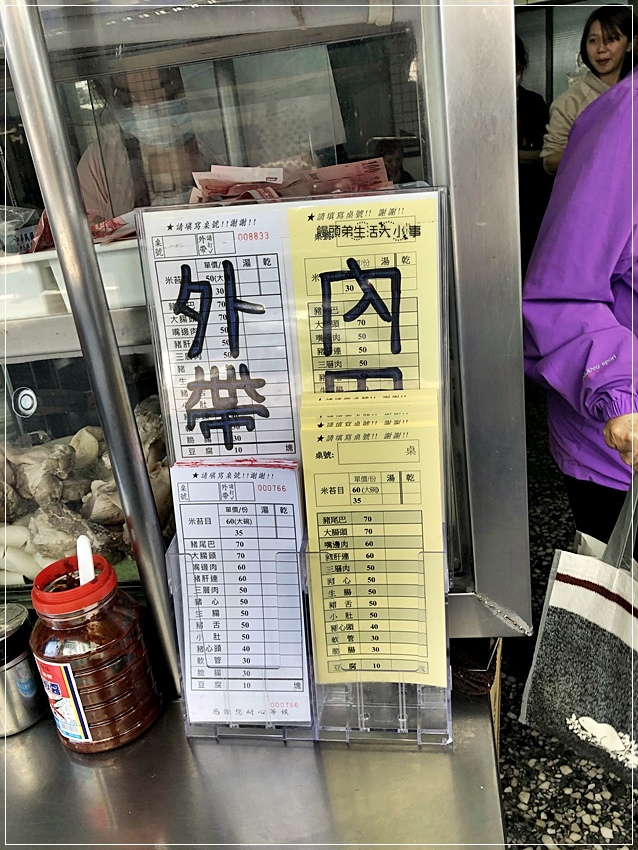 ★請填寫桌號!!謝謝!!
桌號
外帶
008833
單價/份 湯 乾
米苔
50(大
30
豬尾巴 70
大腸頭 70
嘴邊肉 50
豬肝連 50
三層肉
生
脆 30
豆腐 10 塊
外帶
★請填寫桌號!!謝謝!!
桌號:
饅頭弟生活大小事
單價/份 湯 乾
米
30
豬尾巴 70
大腸頭 70
嘴邊肉 50
豬肝連 50
三層肉 50
內用
★請填寫桌號!!謝謝!!
桌號
外帶
000766
單價/份 湯 乾
米苔目 60(大碗)
35
豬尾巴 70
大腸頭 70
嘴邊肉 60
豬肝連 60
三層肉 50
豬心 50
生腸 50
豬舌 50
小肚 50
豬心頭 40
軟管 30
脆腸 30
豆腐 10 塊
000766
感謝您耐心等候
★請填寫桌號!!謝謝!!
★請填寫桌號!!謝謝!!
桌號: 桌
單價/份 湯 乾
米苔目 60(大碗)
35
豬尾巴 70
大腸頭 70
嘴邊肉 60
豬肝連 60
三層肉 50
豬心 50
生腸 50
豬舌 50
小肚 50
豬心頭 40
軟管 30
脆腸 30
豆腐 10